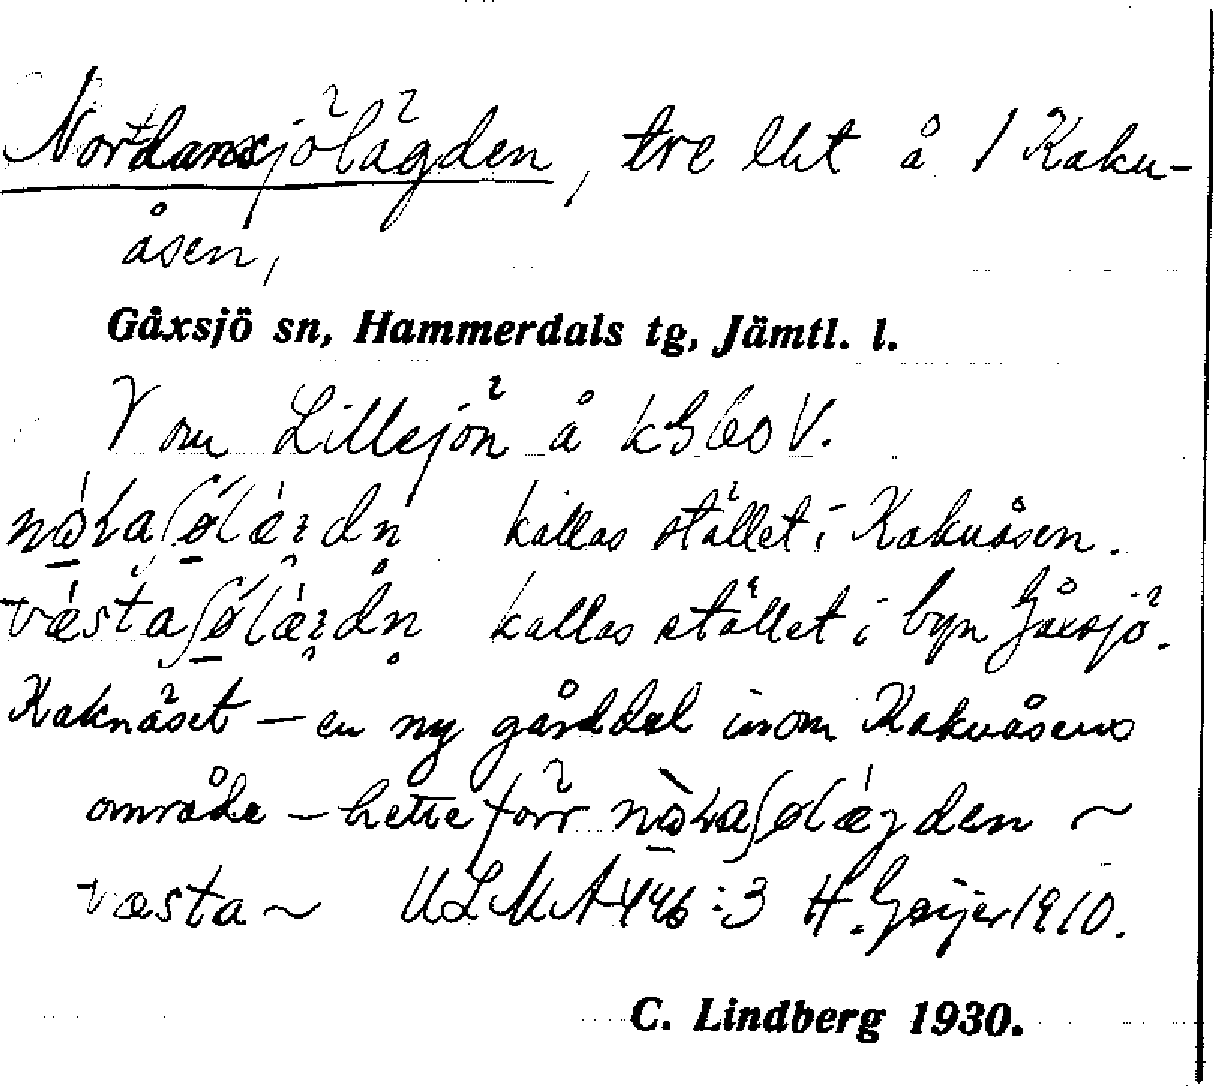 Nordansjölägden, tre lht å 1 Kaku-
åsen,
Gåxsjö sn, Hammerdals tg, Jämtl. l.
V om Lillsjön å kb 60 V.
kallas stället i Kakuåsen.
kallas stället i byn Gåxsjö.
Kaknäset – en ny gårddel inom Kakuåsens
område – hette förr ~
væsta ~ ULMA 446:3 H. Geijer 1910.
C. Lindberg 1930.